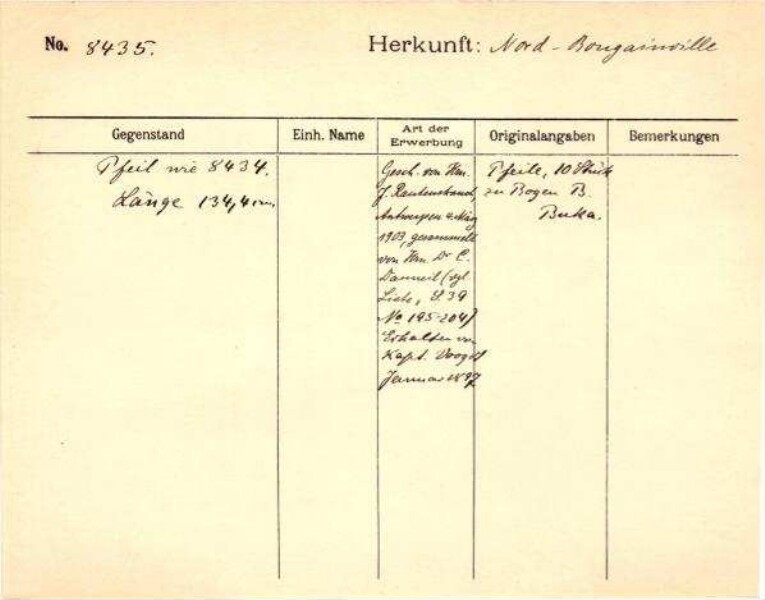 No. 8435.
Herkunft: Nord-Bougainville
Gegenstand
Einh. Name
Art der Erwerbung
Originalangaben
Bemerkungen
Pfeil wie 8434.
Länge 134,4 cm.
Gesch. von Hrn.
J. Rautenstrauch,
Antwerpen 4. März
1903, gesammelt
von Hrn. Dr C.
Danneil (vgl.
Liste, S. 39
No 195-204)
Erhalten von
Kapt. Voogdt
Januar 1897
Pfeile, 10 Stück
zu Bogen B.
Buka.